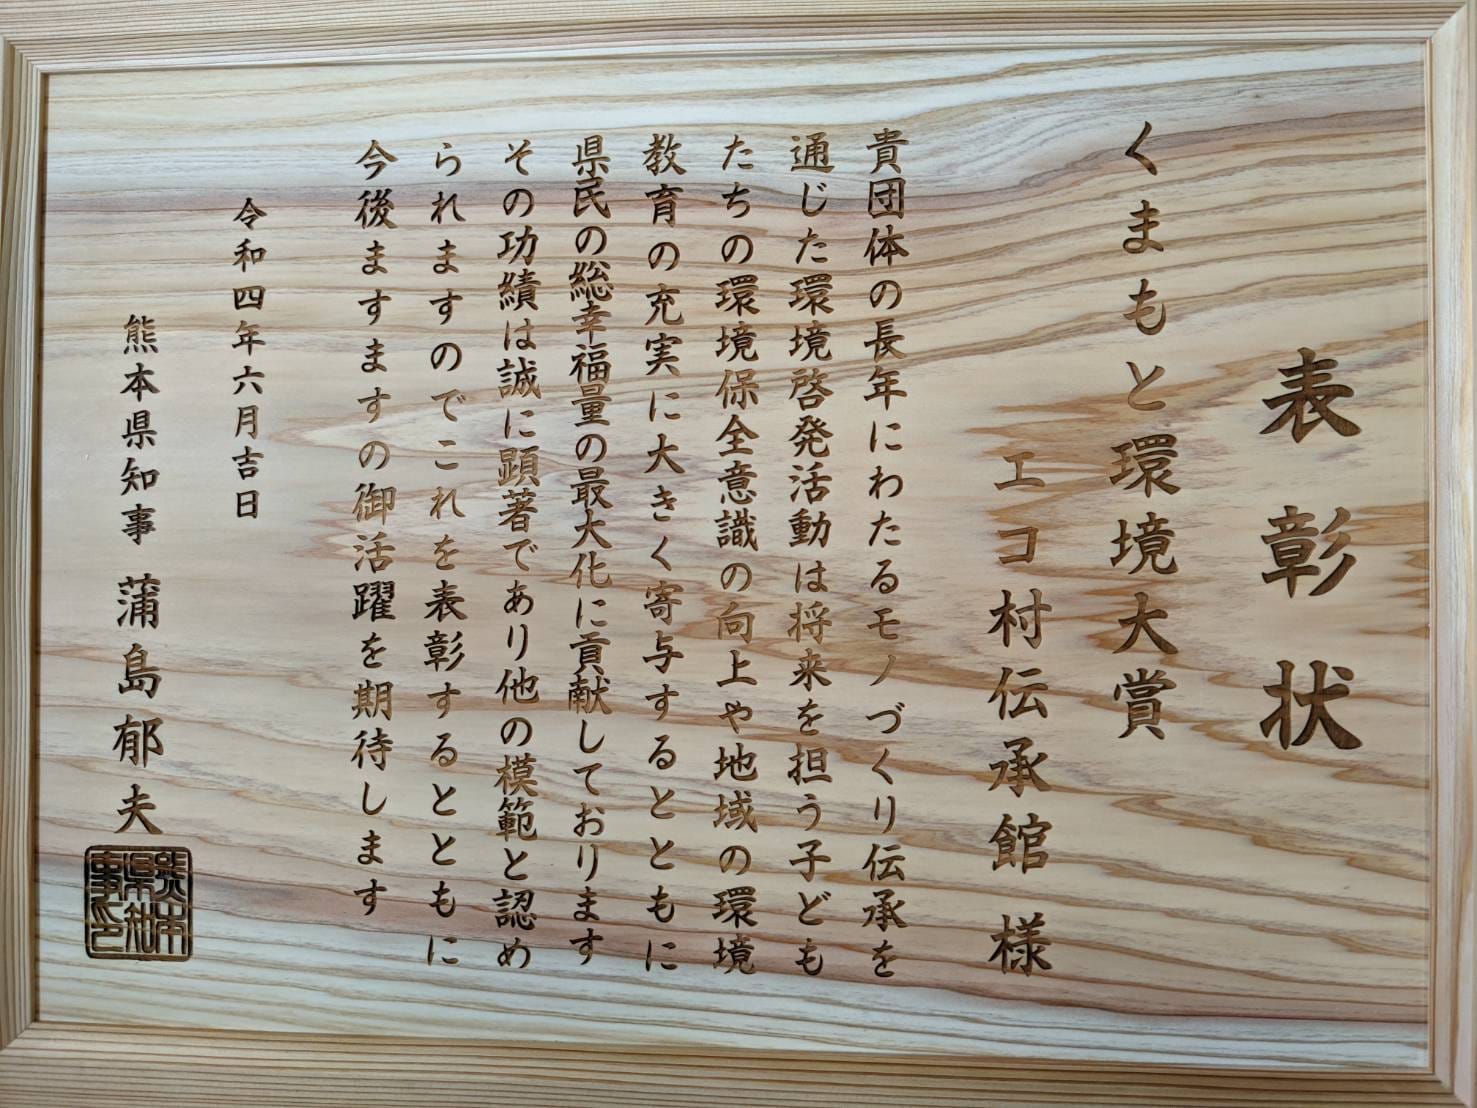 表彰状
くまもと環境大賞
エコ村伝承館 様
貴団体の長年にわたるモノづくり伝承を
通じた環境啓発活動は将来を担う子ども
たちの環境保全意識の向上や地域の環境
教育の充実に大きく寄与するとともに
県民の総幸福量の最大化に貢献しております
その功績は誠に顕著であり他の模範と認め
られますのでこれを表彰するとともに
今後ますますの御活躍を期待します
令和四年六月吉日
熊本県知事 蒲島郁夫
熊本県知事印